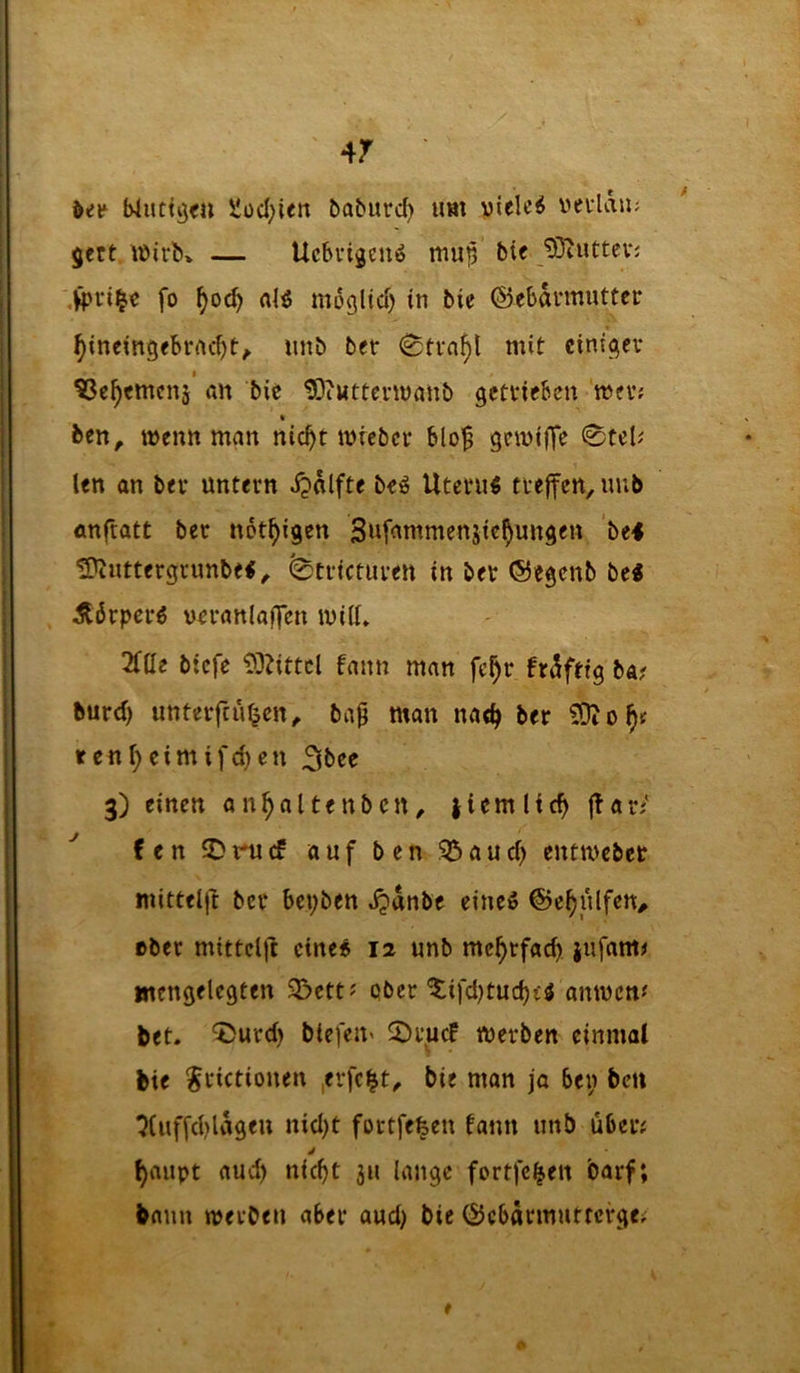 47
der blutigen Lochien dadurch um vieles verlän-
gert wird. — Uebrigens muß die Mutter-
spritze so hoch als möglich in die Gebärmutter
hineingebracht, und der Strahl mit einiger
Vehemenz an die Mutterwand getrieben wer-
den, wenn man nicht wieder bloß gewisse Stel-
len an der untern Hälfte des Uterus treffen, und
anstatt der nöthigen Zusammenziehungen des
Muttergrundes, Stricturen in der Gegend des
Körpers veranlassen will.
Alle diese Mittel kann man sehr kräftig da-
durch unterstützen, daß man nach der Moh-
renheimischen Idee
3) einen anhaltenden, ziemlich star-
ken Druck auf den Bauch entweder
mittelst der beyden Hände eines Gehülfen,
oder mittelst eines 12 und mehrfach zusam-
mengelegten Bett- oder Tischtuches anwen-
det. Durch diesen Druck werden einmal
die Frictionen ersetzt, die man ja bey den
Aufschlägen nicht fortsetzen kann und über-
haupt auch nicht zu lange fortsetzen darf;
dann werden aber auch die Gebärmutterge-